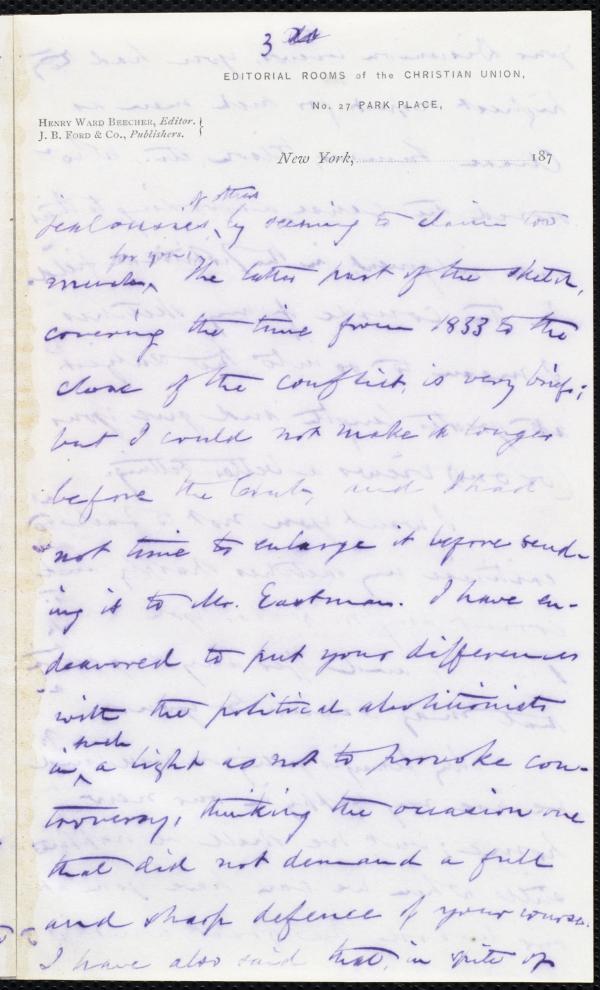 3
EDITORIAL ROOMS of the CHRISTIAN UNION,
No. 27 PARK PLACE,
HENRY WARD BEECHER, Editor.
J. B. FORD & CO., Publishers.
New York, 187
of others
jealousies, by seeming to claim too
for you
much. The latter part of the sketch,
covering the time from 1833 to the
close of the conflict, is very brief;
but I could not make it longer
before the Club, and I had
not time to enlarge it before send-
ing it to Mr. Eastman. I have en-
deavored to put your differences
with the political abolitionists
such
in a light as not to provoke con-
troversy, thinking the occasion one
that did not demand a full
and sharp defence of your course.
I have also said that, in spite of